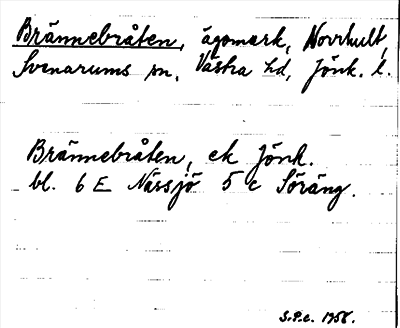 Brännebråten, ägomark, Norrhult,
Svenarums sn, Västra hd, Jönk. l.
Brännebråten, ek Jönk.
bl. 6 E Nässjö 5 c Söräng.
1958.